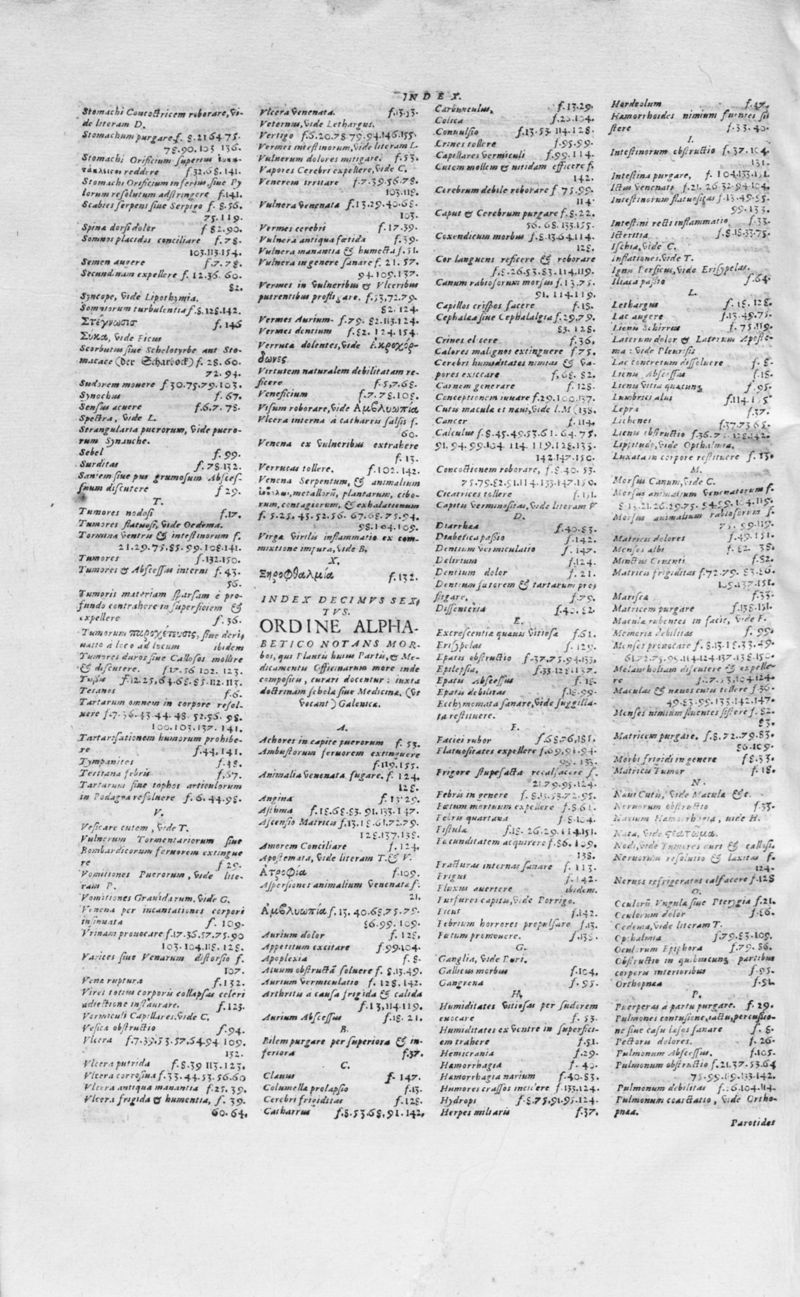 INDEX.
Stomachi Concoctricem roborare, vi-
de literam D.
Stomachum purgare f. 8.21.64.75.
78.90.103.136.
Stomachi Orificium superius
reddere f.32.68.141.
Stomachi Orificium inferius, sive Py
lorum resolutum adstringere f.141.
Scabies serpens sive Serpigo f. 8.56.
75.119.
Spina dorsi dolor f 82.90.
Somnos placidos conciliare f. 78.
103.113.154.
Semen augere f.7.78.
Secundinam expellere f.12.36.60.
82.
Syncope, vide Lipothymia.
Somnorum turbulentia f.8.128.142.
Στέγνωσις f. 146
Συκα, vide Ficus
Scorbutus sive Schelotyrbe aut Sto-
macace (der Scharbock) f.28.60.
72.94.
Sudorem movere f 30.75.79.103.
Synochus f. 67.
Sensus acuere f.6.7.78.
Spectra, vide L.
Strangularia puerorum, vide puero-
rum Synanche.
Sebel f. 99.
Surditas f. 78.132.
Sanien sive pus grumosum Absces-
suum discutere f 29.
T.
Tumores nodosi f.17.
Tumores flatuosi, vide Oedema.
Tormina ventris & intestinorum f.
21.29.75.85.99.108.141.
Tumores f.132.150.
Tumores & Abscessus interni f. 43.
56.
Tumoris materiam sparsam è pro-
fundo contrahere in superficiem &
expellere f. 36.
Tumorum sive deri-
vatio à loco ad locum ibidem
Tumores duros sive Callosos mollire
& discutere. f.17.56.102.123.
Tussis f.12.25.64.68.85.112.113.
Tetanos f.6.
Tartarum omnem in corpore resol-
vere f.7.36.43.44.48.52.56.98.
100.103.137.141.
Tartarisationem humorum prohibe-
re f.44.141.
Tympanites f.48.
Tertiana febris f.67.
Tartarum sive tophos articulorum
in Podagra resolvere f. 6.44.98.
V.
Vesicare cutem, vide T.
Vulnerum Tormentariorum sive
Bombardicorum fervorem extingue
re f.29.
Vomitiones Puerorum, vide lite-
ram P.
Vomitiones Gravidarum, vide G.
Venena per incantationes corpori
insinuata f. 109.
Urinam provocare f.17.36.57.75.90
103.104.118.128.
Varices sive Venarum distorsio f.
107.
Vena ruptura f.132.
Vires totius corporis collapsas celeri
adiectione instaurare. f.123.
Vermiculi Capillares, vide C.
Vesica obstructio f.94.
Vlcera f.7.39.53.57.64.94 109.
132.
Vlcera putrida f.8.39 113.123.
Vlcera corrosiva f.33.44.53.56.60
Vlcera antiqua manantia f.25.39.
Vlcera frigida & humentia, f. 39.
60.64.
Vlcera Venenata. f.13.33.
Veternus, vide Lethargus.
Vertigo f.6.20.78.79.94.146.155.
Vermes intestinorum, vide literam L.
Vulnerum dolores mitigare. f.53.
Vapores Cerebri expellere, vide C,
Venerem irritare f.7.39.56.78.
103.118.
Vulnera Venenata f.13.29.40.68.
103.
Vermes cerebri f.17.39.
Vulnera antiqua foetida f.39.
Vulnera manantia & humecta f.51.
Vulnera in genere sanare f.21.57.
94.109.137.
Vermes in Vulneribus & Vlceribus
putrentibus profligare. f.53.72.79.
82.124.
Vermes Aurium f.79.82.113.124.
Vermes dentium f.82.124.154.
Verruca dolentes, vide Ακροχόρ-
δωνες
Virtutem naturalem debilitatam re-
ficere f.57.68.
Veneficium f.7.78.108.
Visum roborare, vide Αμβλυωπία
Vlcera interna à catharris salsis f.
60.
Venena ex Vulneribus extrahere
f.13.
Verrucas tollere. f.102.142.
Venena Serpentum, & animalium
metallorũ, plantarum, cibo-
rum, contagiorum, & exhalationum
f.5.25.45.52.56.67.68.75.94.
98.104.109.
Virga Virilis inflammatio ex com-
mixtione impura, vide B,
X.
Ξηροφθαλμία f.132.
INDEX DECIMUS SEX-
TVS.
ORDINE ALPHA-
BETICO NOTANS MOR-
bos, qui Plantis huius Partis, & Me-
dicamentis Officinarum more inde
compositis, curari docentur: iuxta
doctrinam scholæ sive Medicinæ, (ut
vocant) Galenicæ.
A.
Achores in capite puerorum f. 53.
Ambustorum fervorem extinguere
f.119.155.
Animalia Venenata fugare. f.124.
128.
Angina f.13.29.
Asthma f.18.68.83.91.133.147.
Ascensio Matricis f.13.18.61.72.79.
128.137.138.
Amorem Conciliare f.124.
Apostemata, vide literam T. & V.
Ατροφία f.109.
Aspersiones animalium Venenata f.
21.
Αμβλυωπία f.13.40.68.75.79.
86.99.109.
Aurium dolor f. 128.
Appetitum excitare f 99.104.
Apoplexia f.8.
Alvum obstructã solvere f.8.13.49.
Aurium Vermiculatio f.128.142.
Arthritis à causa frigida & calida
f.13,114.119.
Aurium Abscessus f.18.21.
B.
Bilem purgare per superiora & in-
feriora f.37.
C.
Clavus f. 147.
Columella prolapsio f.13.
Cerebri frigiditas f.128.
Catharrus f.8.53.68.91.142.
Carbunculus. f.13.29.
Colica f.20.104.
Convulsio f.13.53.114.128.
Crines tollere f.95.99.
Capillares Vermiculi f.99.114.
Cutem mollem & nitidam efficere f.
142.
Cerebrum debile roborare f 75.99.
114.
Caput & Cerebrum purgare f.8.22.
56.68.133.155.
Coxendicum morbus f.8.13.64.114.
128.
Cor languens reficere & roborare
f.8.26.53.83.114.119.
Canum rabiosorum morsus f.13.75.
91.114.119.
Capillos crispos facere f.18.
Cephalæa sive Cephalalgia f.29.79.
83.128.
Crines elisere f.36.
Calores malignos extinguere f.75.
Cerebri humiditates nimias & Va-
pores exiccare f.68.82.
Carnem generare f.128.
Conceptionem iuvare f.29.100.137.
Cutis macula et nævi, vide l.M.138.
Cancer f.114.
Calculus f.8.45.49.53.61.64.75.
91.94.99.104.114.119.128.133.
142.147.150.
Concoctionem roborare, f.8.40.53.
75.79.82.91.114.133.147.150.
Cicatrices tollere f.151.
Capitis verminositas, vide literam V
D.
Diarrhœa f.40.83.
Diabetica passio f.142.
Dentium vermiculatio f.147.
Delirium f.124.
Dentium dolor f.21.
Dentium fœtorem & tartarum pro-
fligare. f.79.
Dissenteria f.40.82.
E.
Excrescentia quævis Vitiosa f.61.
Erysipelas f.129.
Epatis obstructio f.37.75.94.133.
Epilepsia, f.33.128.137.
Epatis Abscessus f.18.
Epatis debilitas f.18.99.
Ecchymomata sanare, vide suggilla-
ta restituere.
F.
Faciei rubor f.68.76.181.
Flatuositates expellere f.69.91.94
99.133.
Frigore stupefacta recalfacere f.
21.79.95.124.
Febris in genere f.8.33.53.72.95.
Foetum mortuum expellere f.8.61.
Febris quartana f.8.104.
Fistula f.18.26.29.114.151.
Foecunditatem acquirere f.86.109.
138.
Fracturas internas sanare f.113.
Frigus f.142.
Fluxus avertere ibidem.
Furfures capitis, vide Porrigo.
Ficus f.142.
Febrium horrores propulsare f.13.
Foetum promovere. f.138.
G.
Ganglia, vide Duri.
Gallicus morbus f.104.
Gangræna f.95.
H.
Humiditates Vitiosas per sudorem
evocare f.53.
Humiditates ex ventre in superfici-
em trahere f.51.
Hemicrania f.29.
Hæmorrhagia f.40.
Hæmorrhagia narium f.40.83.
Humores crassos incidere f.133.124.
Hydrops f.8.75.91.95.124.
Herpes miliaris f.37.
Hordeolum f.47.
Hæmorrhoides nimium fluentes si
stere f.33.40.
I.
Intestinorum obstructio f.37.104.
131.
Intestina purgare, f.104.133.151.
Ictus Venenatos f.21.26.32.94.104.
Intestinorum flatuositas f.13.49.55.
99.133.
Intestini recti inflammatio, f.33.
Icteritia f.8.18.33.75.
Ischia, vide C.
Inflationes, vide T.
Ignis Persicus, vide Erysipelas.
Iliaca passio f.64.
L.
Lethargus f.18.128.
Lac augere f.13.49.75.
Lienis Schirrus f.75.119.
Laterum dolor & Laterum Aposte-
ma: vide Pleurisis
Lac concretum dissolvere f.8.
Lienis Abscessus f.18.
Lienis Vitia quæcunq; f.95.
Lumbrici alvi f.114.
Lepra f.37.
Lichenes f.37.73.68.
Lienis obstructio f.36.7
Lippitudo, vide Opthalmia.
Luxata in corpore restituere f.13.
M.
Morsus Canum, vide C.
Morsus animalium venenatorum f.
Morsus animalium rabiosorum f.
75.99.119.
Matricis dolores f.49.151.
Menses albi f.82.38.
Minctus Cruenti f.82.
Matricis frigiditas f.72.79.83.
109.137.151.
Marisca f.33.
Matricem purgare f.138.151.
Macula rubentes in facie, vide F.
Memoria debilitas f.99.
Menses provocare f.8.13.18.33.49.
61.72.75.95.114.124.137.138.150.
Melancholiam discutere & expelle-
re f.7.13.104.124
Maculas & nævos cutis tollere f 30.
49.83.99.133.142.147.
Menses nimium fluentes sistere f.82.
83.
Matricem purgare. f.8.72.79.83
86.109.
Morbi frigidi in genere f 8.33.
Matricis Tumor f.18.
N.
Nævi Cutis, vide Macula &c.
Nervorum obstructio f.33.
Narium Hæmorrhagia, vide H.
Nata, vide
Nodi, vide Tumores duri & callosi.
Nervorum resolutio & laxitas f.
124.
Nervos refrigeratos calfacere f.128
O.
Oculorũ Ungula sive Pterygia f.21.
Oculorum dolor f.86.
Oedema, vide literam T.
Opthalmia f.79.83.109.
Oculorum Epiphora f.79.86.
Obstructio in quibuscunq; partibus
corporis interioribus f.95.
Orthopnœa f.51.
P.
Puerperas à partu purgare. f.29.
Pulmones contusione, iactu, percussio-
ne sive casu læsos sanare f.8.
Pectoris dolores. f.26.
Pulmonum Abscessus. f.105.
Pulmonum obstructio f.21.37.53.64
75.99.119.133.142.
Pulmonum debilitas f.6.104.114.
Pulmonum coarctatio, vide Ortho-
pnœa.
Parotides